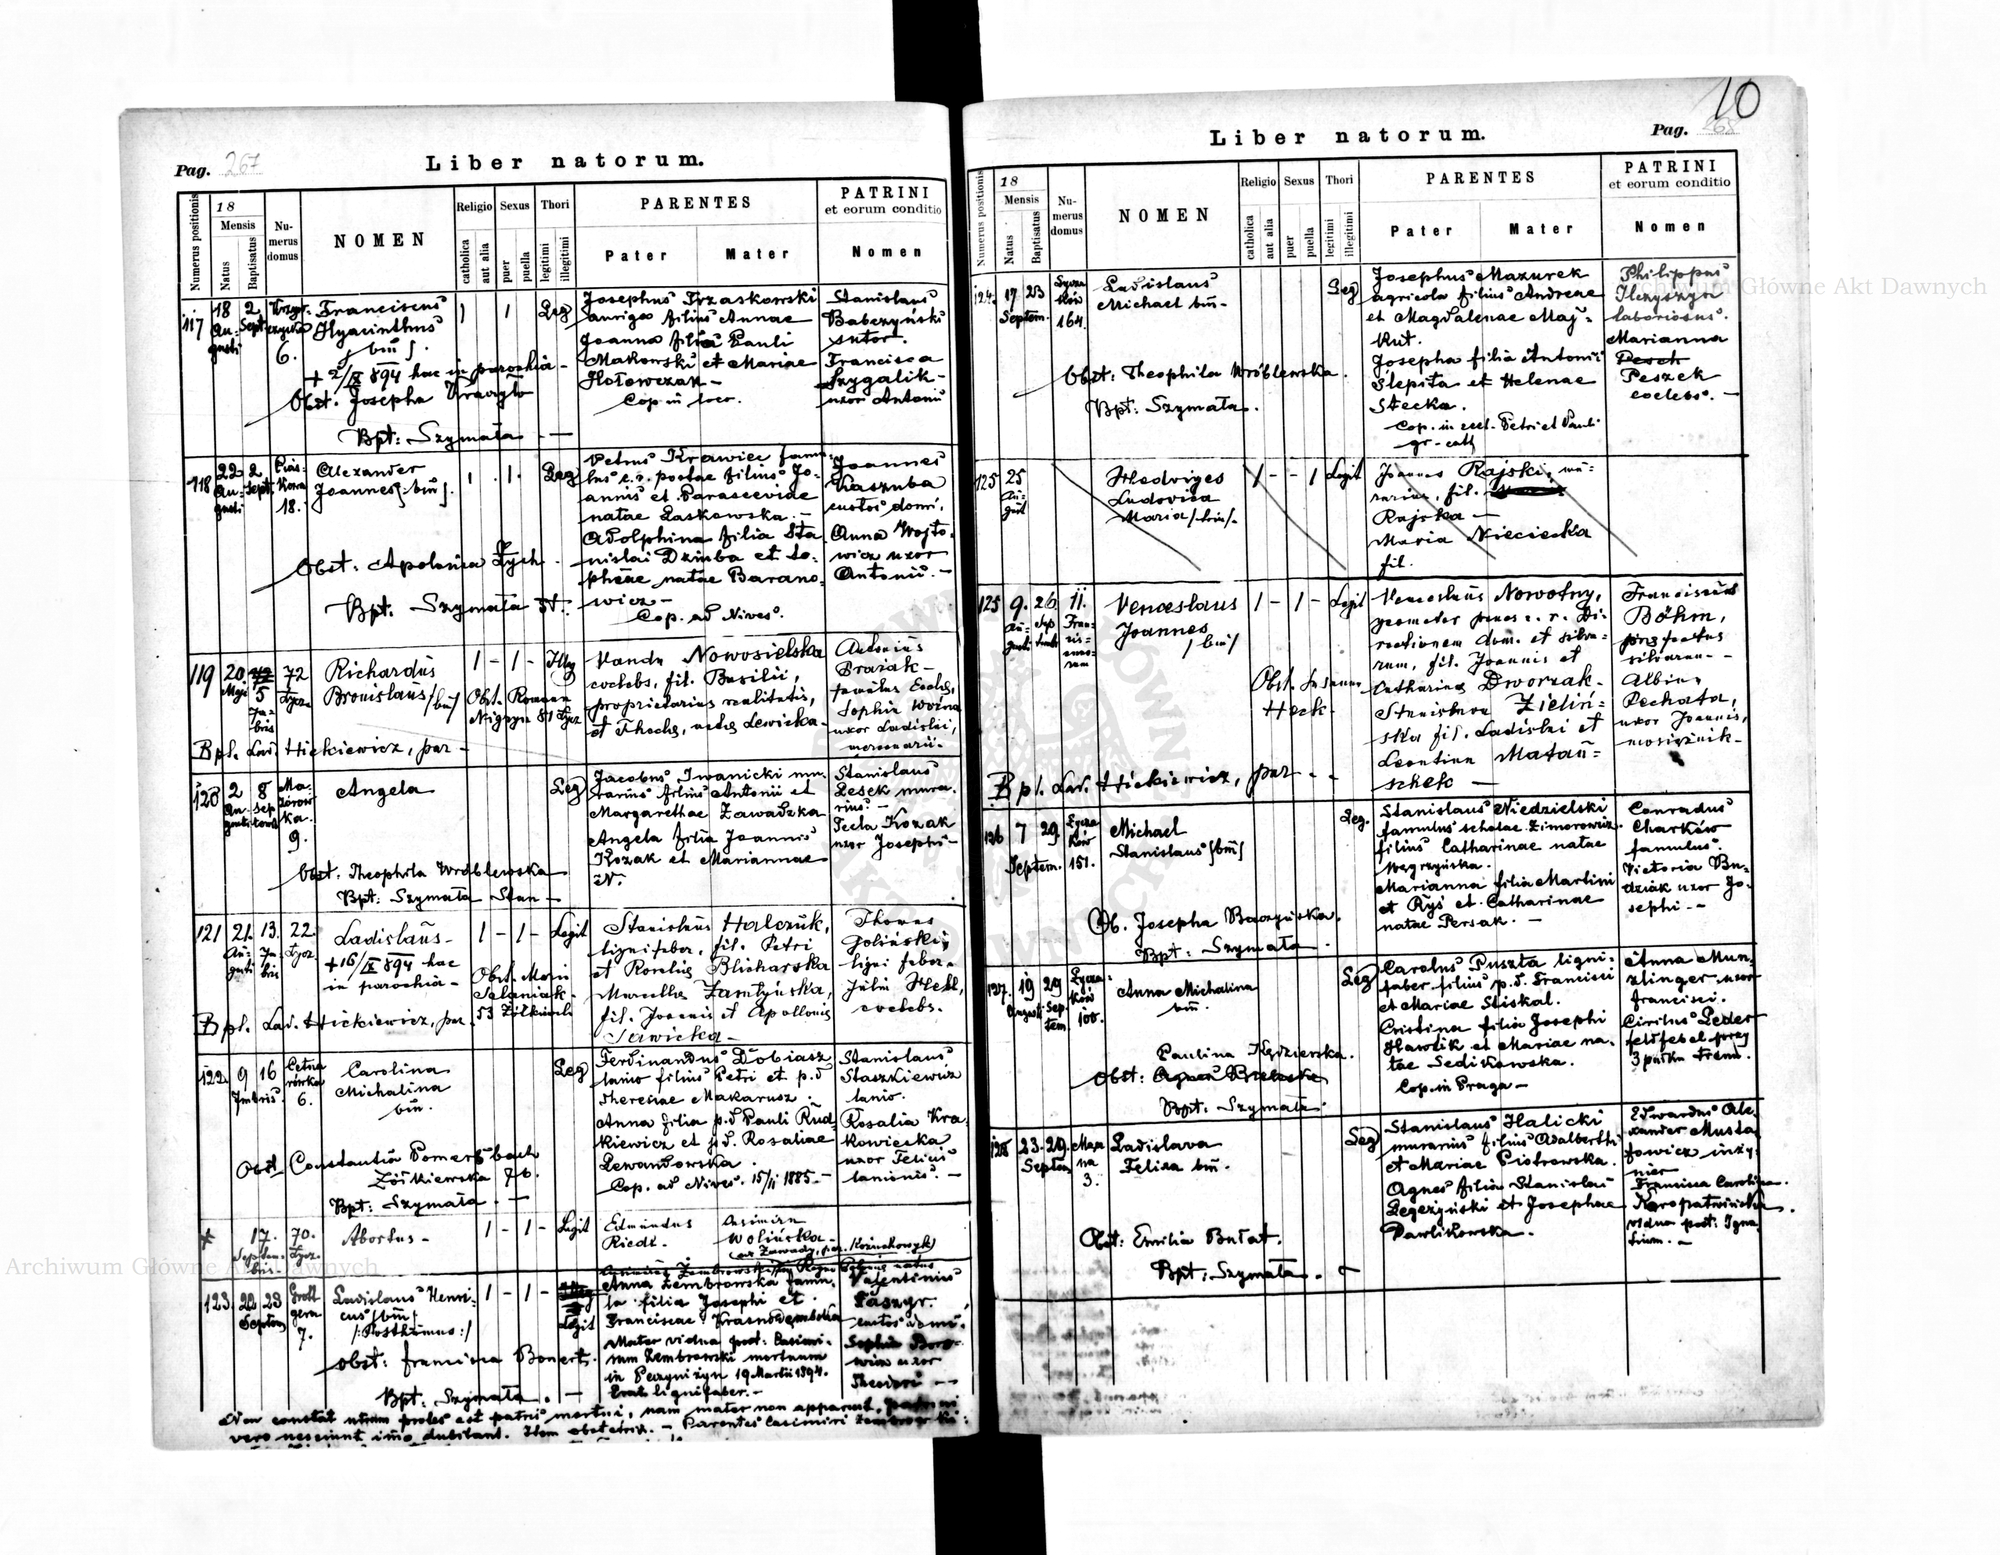 10
Pag. 267
Liber natorum.
Numerus positionis
18
Mensis
Natus
Baptisatus
Numerus domus
NOMEN
Religio
catholica
aut alia
Sexus
puer
puella
Thori
legitimi
illegitimi
PARENTES
Pater
Mater
PATRINI
et eorum conditio
Nomen
117
18 Augusti
2 Sept.
6.
Franciscus
Hyacinthus
bin
+ 2/IX 894 hac in parochia
Obst. Josepha
Bpt: Szymała
Leg
Josephus Trzaskowski
auriga filius Annae
Joanna filia Pauli
Makowski et Mariae
Hołowczak
Cop. in loco.
Stanislaus
Babczyński
sutor.
Francisca
Szygalik
uxor Antonii
118
22 Augusti
2 Sept.
18.
Alexander
Joannes bin
Obst: Apolonia Zych
Bpt: Szymała St.
Leg
Petrus Krawiec famu-
lus c.r. postae filius Jo-
annis et Parasceviae
natae Laskowska.
Adolphina filia Sta
nislai Dziuba et So-
phiae natae Barano-
wicz
Cop. ad Nives.
Joannes
Kaszuba
custos domi.
Anna Wojto-
wicz uxor
Antonii.
119
20 Maji
5
72
Richardus
Bronislaus /bin/
Obst. Romana
Bpt. Lad. Hickiewicz, par
Illeg
Vanda Nowosielska
coelebs, fil. Basilii,
proprietarius realitatis,
et Theclae, natae Lewicka
Antonius
famulus Eccles,
Sophia Woźna
uxor Ladislai,
mercenarii
120
2 Augusti
8 Septembris
Mazurówka
9.
Angela
Obst: Theophila Wróblewska
Bpt: Szymała Stan
Leg
Jacobus Iwanicki mu-
rarius filius Antonii et
Margarethae Zawadzka
Angela filia Joannis
Kozak et Mariannae
N.
Stanislaus
Lesek mura-
rius
Tecla Kozak
uxor Josephi
121
21. Augusti
13. 7bris
22.
Ladislaus
+ 16/IX 894 hac
in parochia
Bpt. Lad. Hickiewicz, par
Legit
Stanislaus Halczuk,
lignifaber, fil. Petri
et Rosaliae Blicharska
Marcella Zamłyńska,
fil. Joannis et Apollonis
Sawicka
Thomas
Goliński,
ligni faber
Julia Hekl,
coelebs.
122
9 16
7mbris
Cetnarówka
6.
Carolina
Michalina
bin.
Obst Constantia Pomersbach
Żółkiewska 76.
Bpt: Szymała
Leg
Ferdinandus Dobiasz
lanio filius Petri et p.d
Theresiae Makarusz.
Anna filia p.d Pauli Rud-
kiewicz et p.d. Rosaliae
Lewandowska.
Cop. ad Nives. 15/II 1885.
Stanislaus
Staszkiewicz
lanio.
Rosalia Kra-
kowiecka
uxor Felicis
lanionis.
*
17.
Septembris
70.
Łycz.
Abortus
Legit
Edmundus
Riedl.
Casimira
Wolińska
123
22 23
Septem
7.
Ladislaus Henri-
cus /bin/
/:Posthumus:/
Obst: Francisca Bonert.
Bpt: Szymała.
Legit
Anna Zembrowska famu-
la filia Josephi et
Franciscae Krasnodembska
Mater vidua post: Casimi-
rum Zembrowski mortuum
in Peczyniżyn 19 Martii 1894.
Erat lignifaber.
Valentinius
custos domi.
Sophia Boro-
wicz uxor
Theodori
Non constat utrum proles est patris mortui, nam mater non apparuit, patrini
vero nesciunt imo dubitant. Item obstetrix. Parentes Casimiri
Liber natorum.
Pag. 268
Numerus positionis
18
Mensis
Natus
Baptisatus
Numerus domus
NOMEN
Religio
catholica
aut alia
Sexus
puer
puella
Thori
legitimi
illegitimi
PARENTES
Pater
Mater
PATRINI
et eorum conditio
Nomen
124.
17 23
Septem.
164.
Ladislaus
Michael bin
Obst: Theophila Wróblewska.
Bpt: Szymała.
Leg
Josephus Mazurek
agricola filius Andreae
et Magdalenae Maj-
kut.
Josepha filia Antonii
Slepita et Helenae
Stecka.
Cop. in eccl. Petri et Pauli
gr. cath
Philippus
Ilczyszyn
laboriosus.
Marianna
Pesch
Peszek
coelebs.
125
25
Hedviges
Ludovica
Maria /trin/
Legit
Joannes Rajski, mu-
rarius, fil.
Rajska
Maria Nieciecka
fil.
125
9. Augusti
26 Septembr
11.
Venceslaus
Joannes
/bin/
Obst. Susanna
Heck
Bpt. Lad. Hickiewicz, par
Legit
Venceslaus Nowotny,
geometer penes c. r. Di-
rectionem dom. et silva-
rum, fil. Joannis et
Catharina Dworzak
Stanislava Zieliń-
ska fil. Ladislai et
Leontina Matau-
schek
Franciscus
Böhm,
praefectus
silvarum
Albina
Pechata,
uxor Joannis,
mosiężnik
126
7 29
Septem.
Łyczaków
151.
Michael
Stanislaus /bin/
Ob. Josepha Baczyńska.
Bpt: Szymała
Leg.
Stanislaus Niedzielski
famulus scholae Zimorowicz
filius Catharinae natae
Węgrzyńska.
Marianna filia Martini
et Ryś et Catharinae
natae Persak.
Conradus
Charków
famulus.
Victoria Bu-
dziak uxor Jo-
sephi
127.
19 Augusti
29 Septem
Łyczaków
100.
Anna Michalina
bin.
Paulina Kędzierska.
Obst:
Bpt: Szymała
Leg
Carolus Puszta ligni-
faber filius p.d. Francisci
et Mariae Stiskal.
Cristina filia Josephi
Hawlik et Mariae na-
tae Sedikowska.
Cop. in Praga
Anna Mun-
zlinger uxor
Francisci.
Cirilus Leder
feldfebel przy
3 pułku
128
23. 29.
Septem
3.
Ladislava
Felixa bin.
Obst: Emilia Bułat.
Bpt: Szymała.
Leg
Stanislaus Halicki
murarius filius Adalberthi
et Mariae Piotrowska.
Agnes filia Stanislai
Legeżyński et Josephae
Pawlikowska.
Edwardus Ale-
xander Musta
fowicz inży-
nier
Francisca Carolina
vidua post: Igna-
tium.
Archiwum Główne Akt Dawnych
Archiwum Główne Akt Dawnych